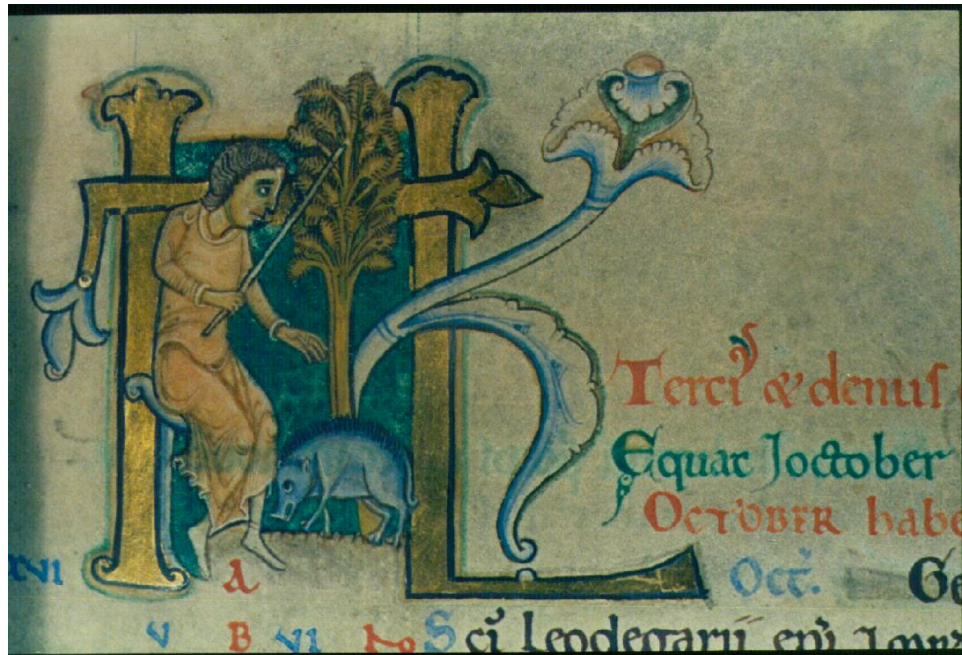 KL
Terci' & denus
Equat Joctober
OCTOBER habe
XVI A Oct. Ge
V B VI No Sci Leodegarii epi